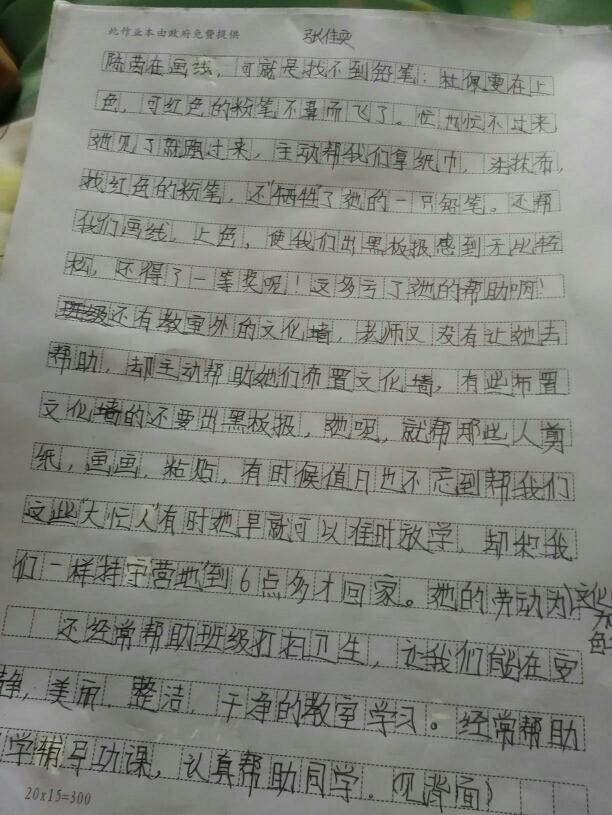 此作业本由政府免费提供
张佳奕
陈茜在画线，可就是找不到铅笔；杜佩雯在上
色，可红色的粉笔不翼而飞了。忙都忙不过来，
她见了就跑过来，主动帮我们拿纸巾，洗抹布，
找红色的粉笔，还"牺牲"了她的一只铅笔。还帮
我们画线，上色，使我们出黑板报感到无比轻
松，还得了一等奖呢！这多亏了她的帮助啊！
班级还有教室外的文化墙，老师又没有让她去
帮助，却主动帮助她们布置文化墙，有些布置
文化墙的还要出黑板报，她呢，就帮那些人剪
纸，画画，粘贴，有时候值日也不忘到帮我们
这些"大忙人"有时她早就可以准时放学，却和我
们一样持守营地到6点多才回家。她的劳动为文化
还经常帮助班级打扫卫生，让我们能在安
静，美丽，整洁，干净的教室学习。经常帮助
学辅导功课，认真帮助同学。（见背面）
20x15=300